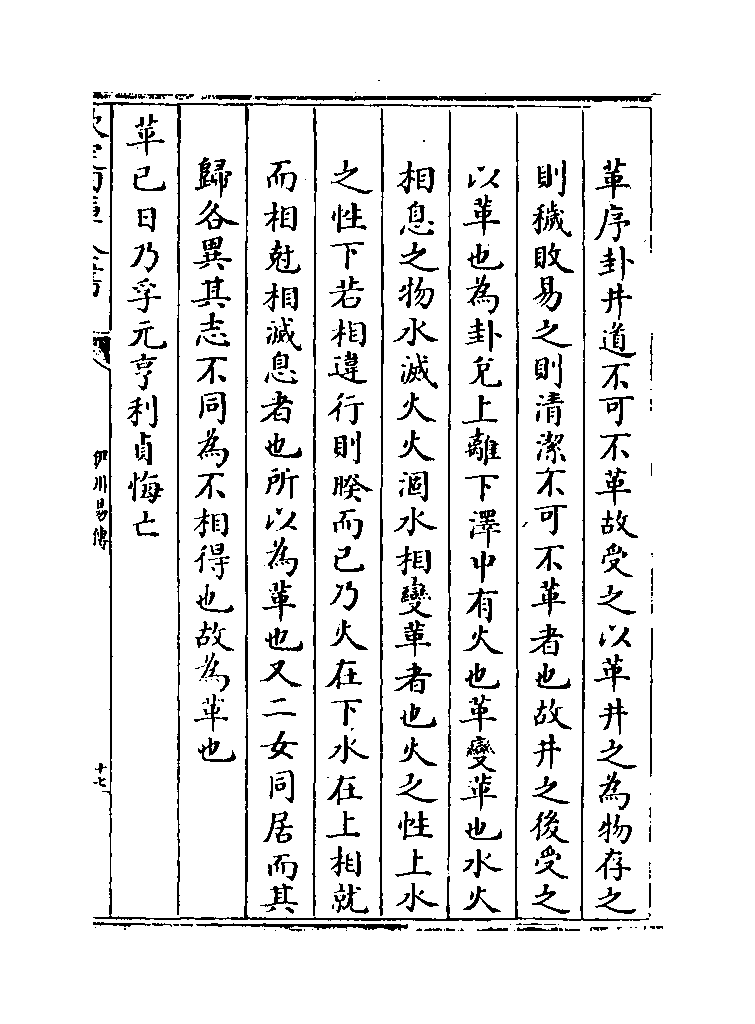 革序卦井道不可不革故受之以革井之為物存之
則穢敗易之則清潔不可不革者也故井之後受之
以革也為卦兌上離下澤中有火也革變革也水火
相息之物水滅火火涸水相變革者也火之性上水
之性下若相違行則睽而已乃火在下水在上相就
而相尅相滅息者也所以為革也又二女同居而其
歸各異其志不同為不相得也故為革也
革已日乃孚元亨利貞悔亡
伊川易傳
十七